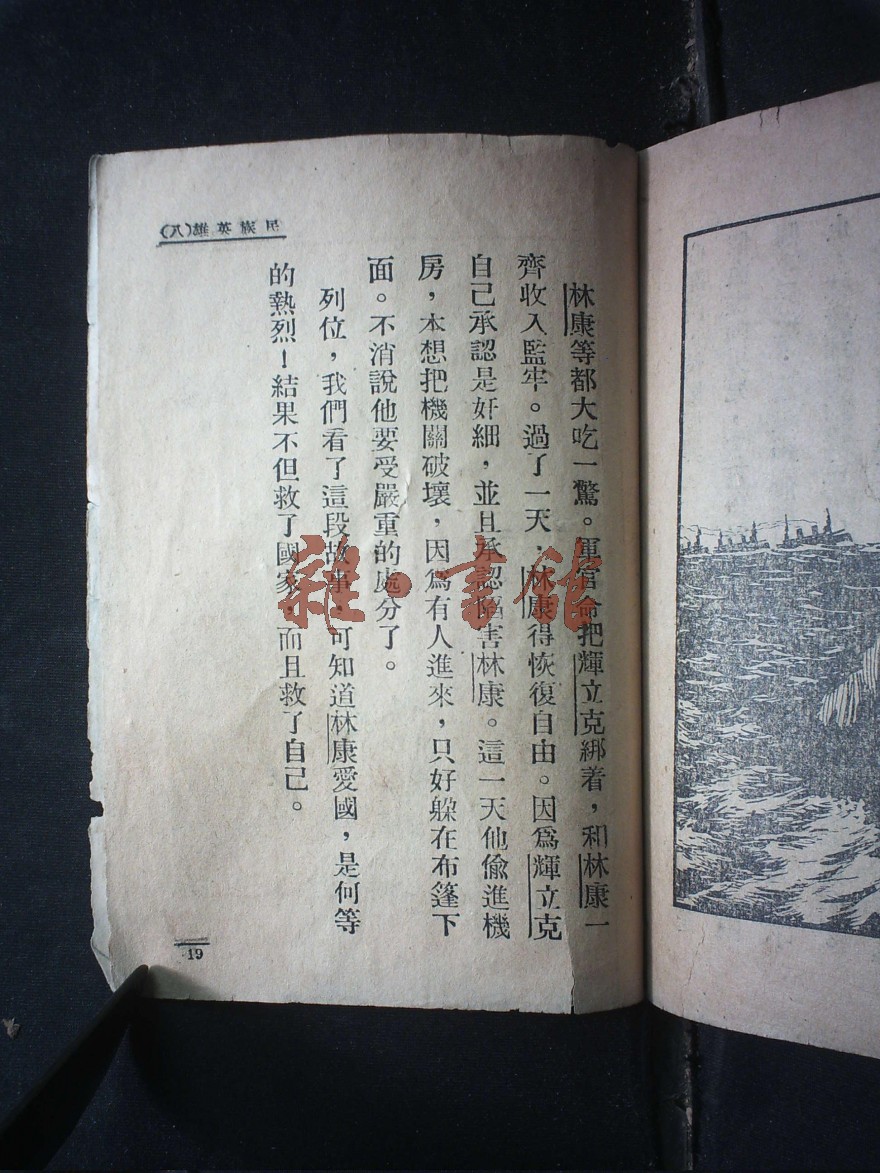 民族英雄(八)
林康等都大吃一驚。軍官命把輝立克綁着，和林康一
齊收入監牢。過了一天，林康得恢復自由。因爲輝立克
自己承認是奸細，並且承認陷害林康。這一天他偷進機
房，本想把機關破壞，因爲有人進來，只好躲在布篷下
面。不消說他要受嚴重的處分了。
列位，我們看了這段故事，可知道林康愛國，是何等
的熱烈！結果不但救了國家，而且救了自己。
19
雜·書館